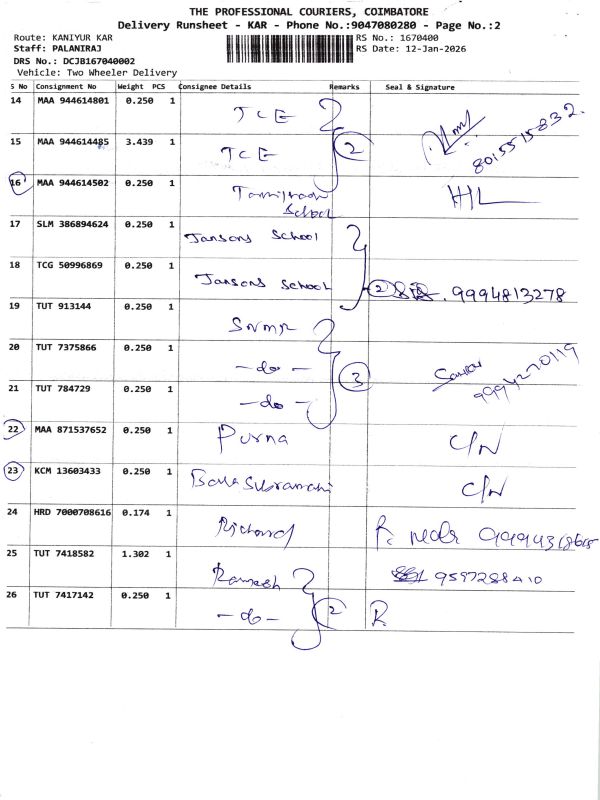 THE PROFESSIONAL COURIERS, COIMBATORE
Delivery Runsheet - KAR - Phone No.:9047080280 - Page No.:2
Route: KANIYUR KAR
RS No.: 1670400
Staff: PALANIRAJ
RS Date: 12-Jan-2026
DRS No.: DCJB167040002
Vehicle: Two Wheeler Delivery
S No Consignment No Weight PCS Consignee Details Remarks Seal & Signature
14 MAA 944614801 0.250 1 TCE
15 MAA 944614485 3.439 1 TCE 2 8015515832
16 MAA 944614502 0.250 1 Tamilnadu School HL
17 SLM 386894624 0.250 1 Jansons School
18 TCG 50996869 0.250 1 Jansons School 2 9994813278
19 TUT 913144 0.250 1 SNMR
20 TUT 7375866 0.250 1 -do- 3 9994270119
21 TUT 784729 0.250 1 -do-
22 MAA 871537652 0.250 1 Purna C/N
23 KCM 13603433 0.250 1 Balasubramani C/N
24 HRD 7000708616 0.174 1 Richard R.
25 TUT 7418582 1.302 1 Ramesh 9597288410
26 TUT 7417142 0.250 1 -do- 2 R